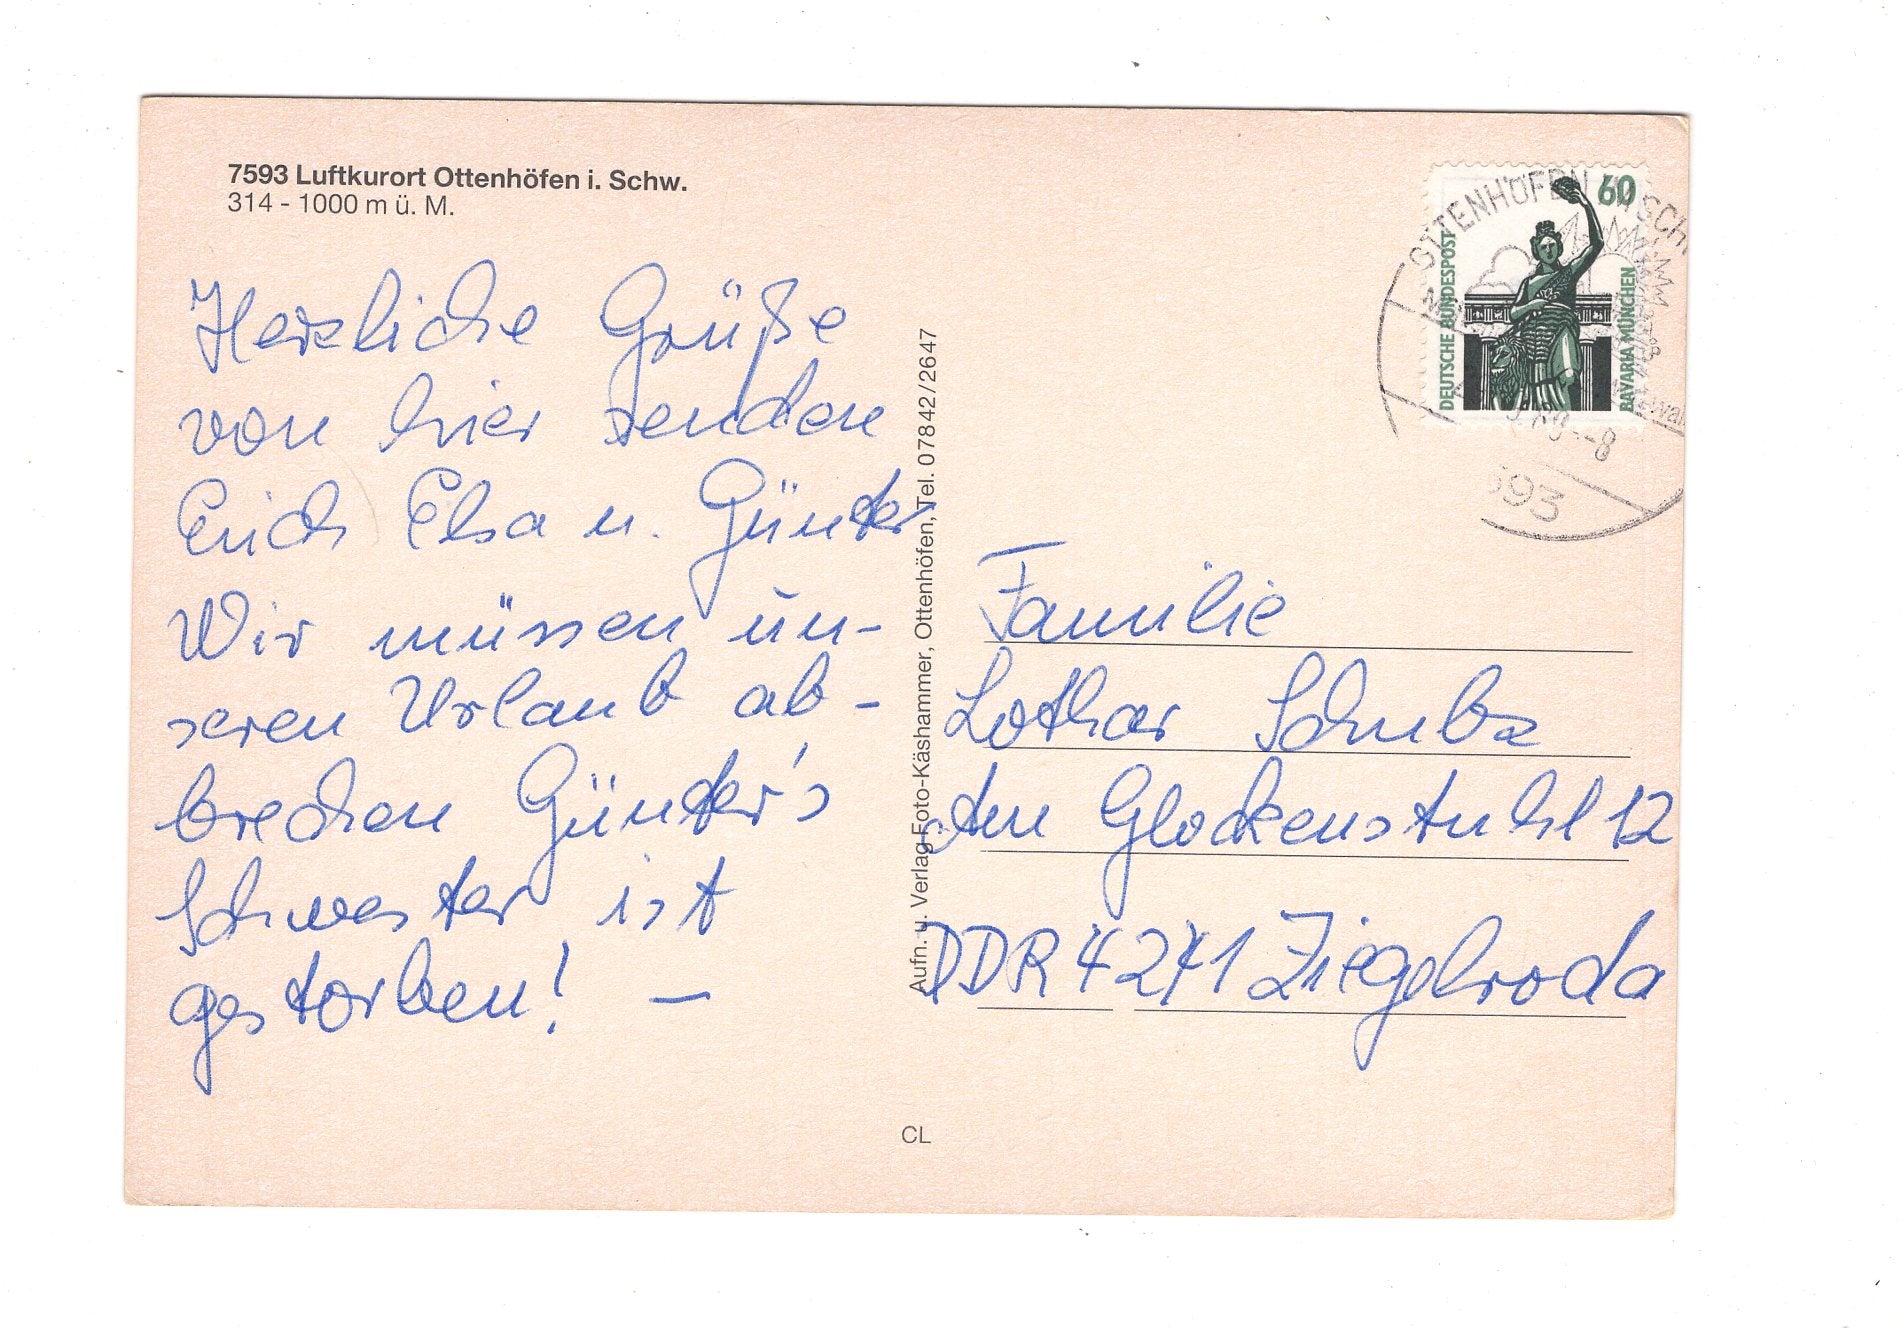 7593 Luftkurort Ottenhöfen i. Schw.
314 - 1000 m ü. M.
Herzliche Grüße
von hier senden
Erich Elsa u. Günter
Wir müssen un-
seren Urlaub ab-
brechen Günter's
Schwester ist
gestorben! —
Aufn. u. Verlag Foto-Käshammer, Ottenhöfen, Tel. 07842/2647
CL
60
DEUTSCHE BUNDESPOST
BAVARIA MÜNCHEN
OTTENHÖFEN IM SCHW
593
Familie
Lothar Schubz
Am Glockenstuhl 12
DDR 4241 Ziegelroda